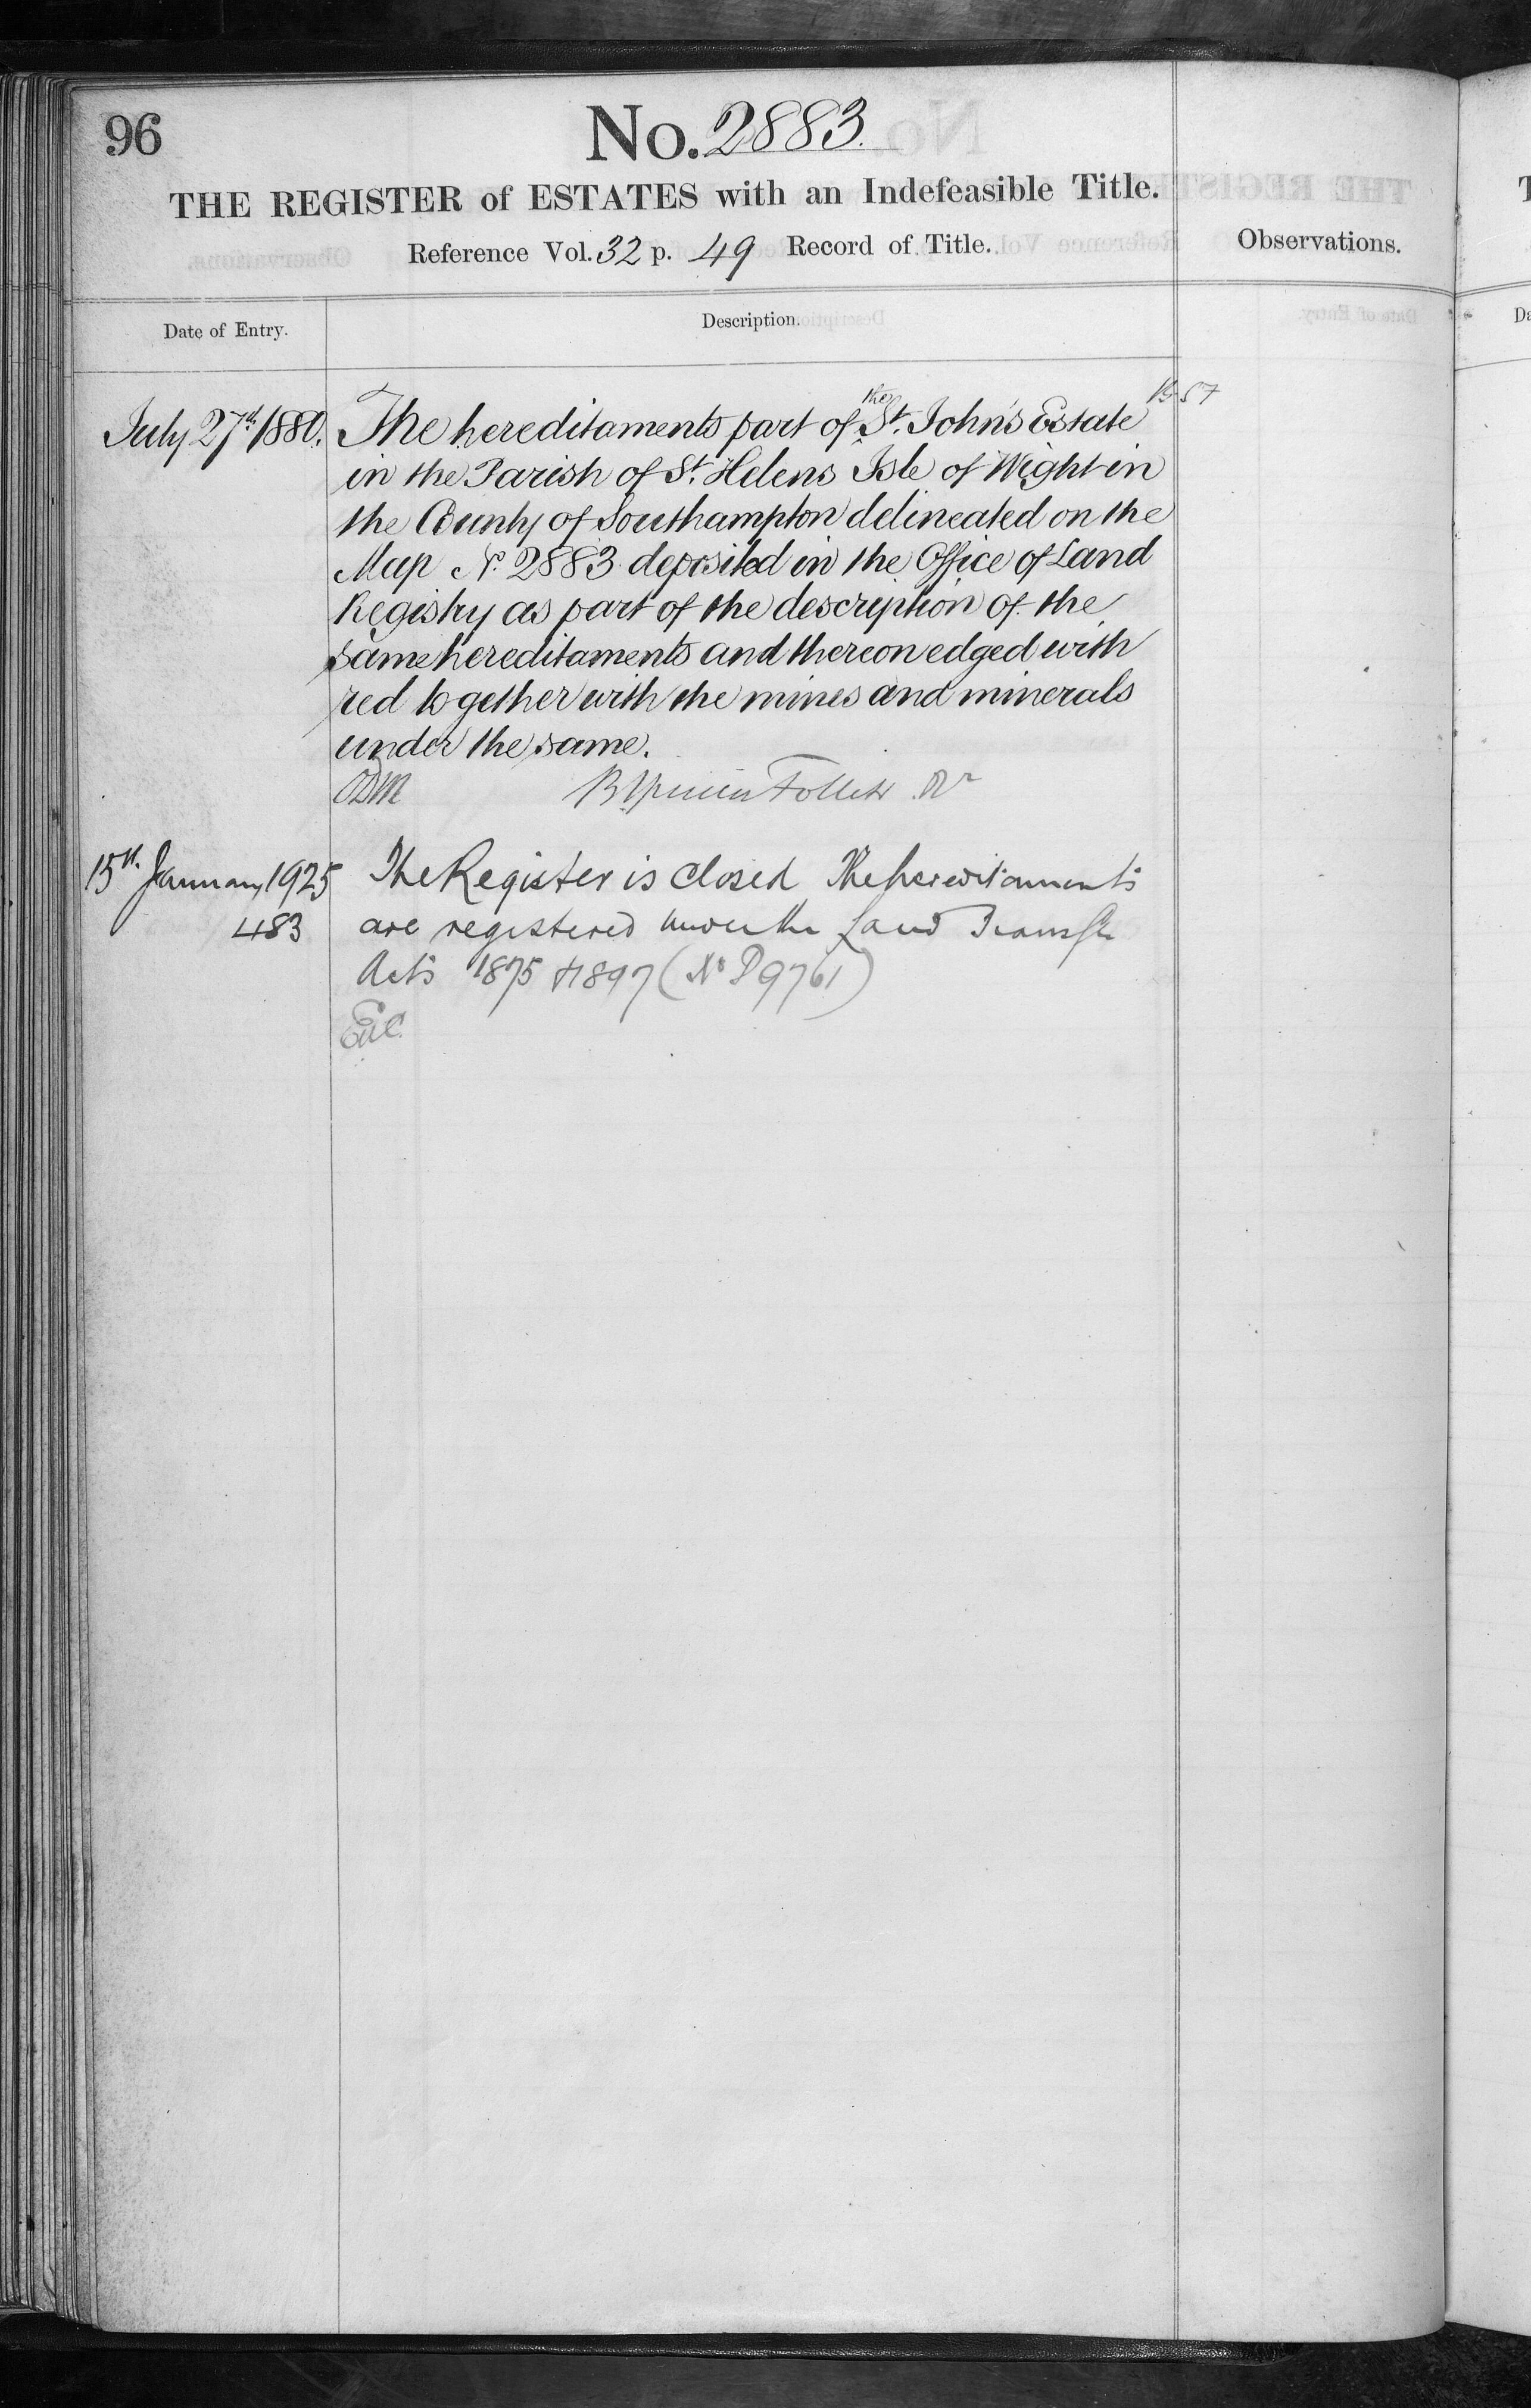 96
No. 2883.
THE REGISTER of ESTATES with an Indefeasible Title.
Reference Vol. 32 p. 49 Record of Title.
Observations.
Date of Entry.
Description.
July 27th 1880.
The hereditaments part of the St. John's Estate
in the Parish of St. Helens Isle of Wight in
the County of Southampton delineated on the
Map No. 2883 deposited in the Office of Land
Registry as part of the description of the
same hereditaments and thereon edged with
red together with the mines and minerals
under the same.
Follett Rr
15th January 1925
483
The Register is closed The hereditaments
are registered under the Land Transfer
Acts 1875 & 1897 (No P9761)